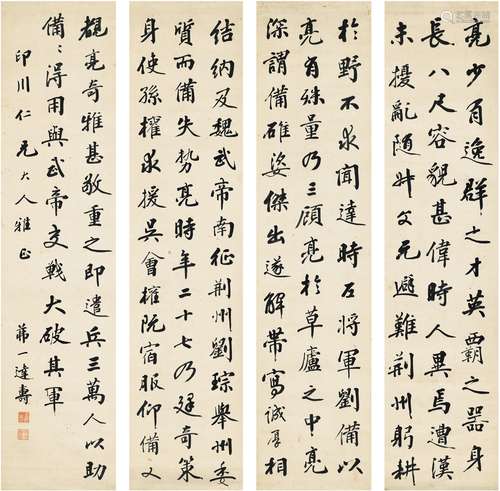 亮少有逸群之才英霸之器身
長八尺容貌甚偉時人異焉遭漢
末擾亂随叔父元避難荊州躬耕
於野不求聞達時左將軍劉備以
亮有殊量乃三顧亮於草廬之中亮
深謂備雄姿傑出遂解帶寫誠厚相
結納及魏武帝南征荊州劉琮舉州委
質而備失勢亮時年二十七乃建奇策
身使孫權求援吳會權既宿服仰備又
覩亮奇雅甚敬重之即遣兵三萬人以助
備〻得用與武帝交戰大破其軍
印川仁兄大人雅正
弟一達壽